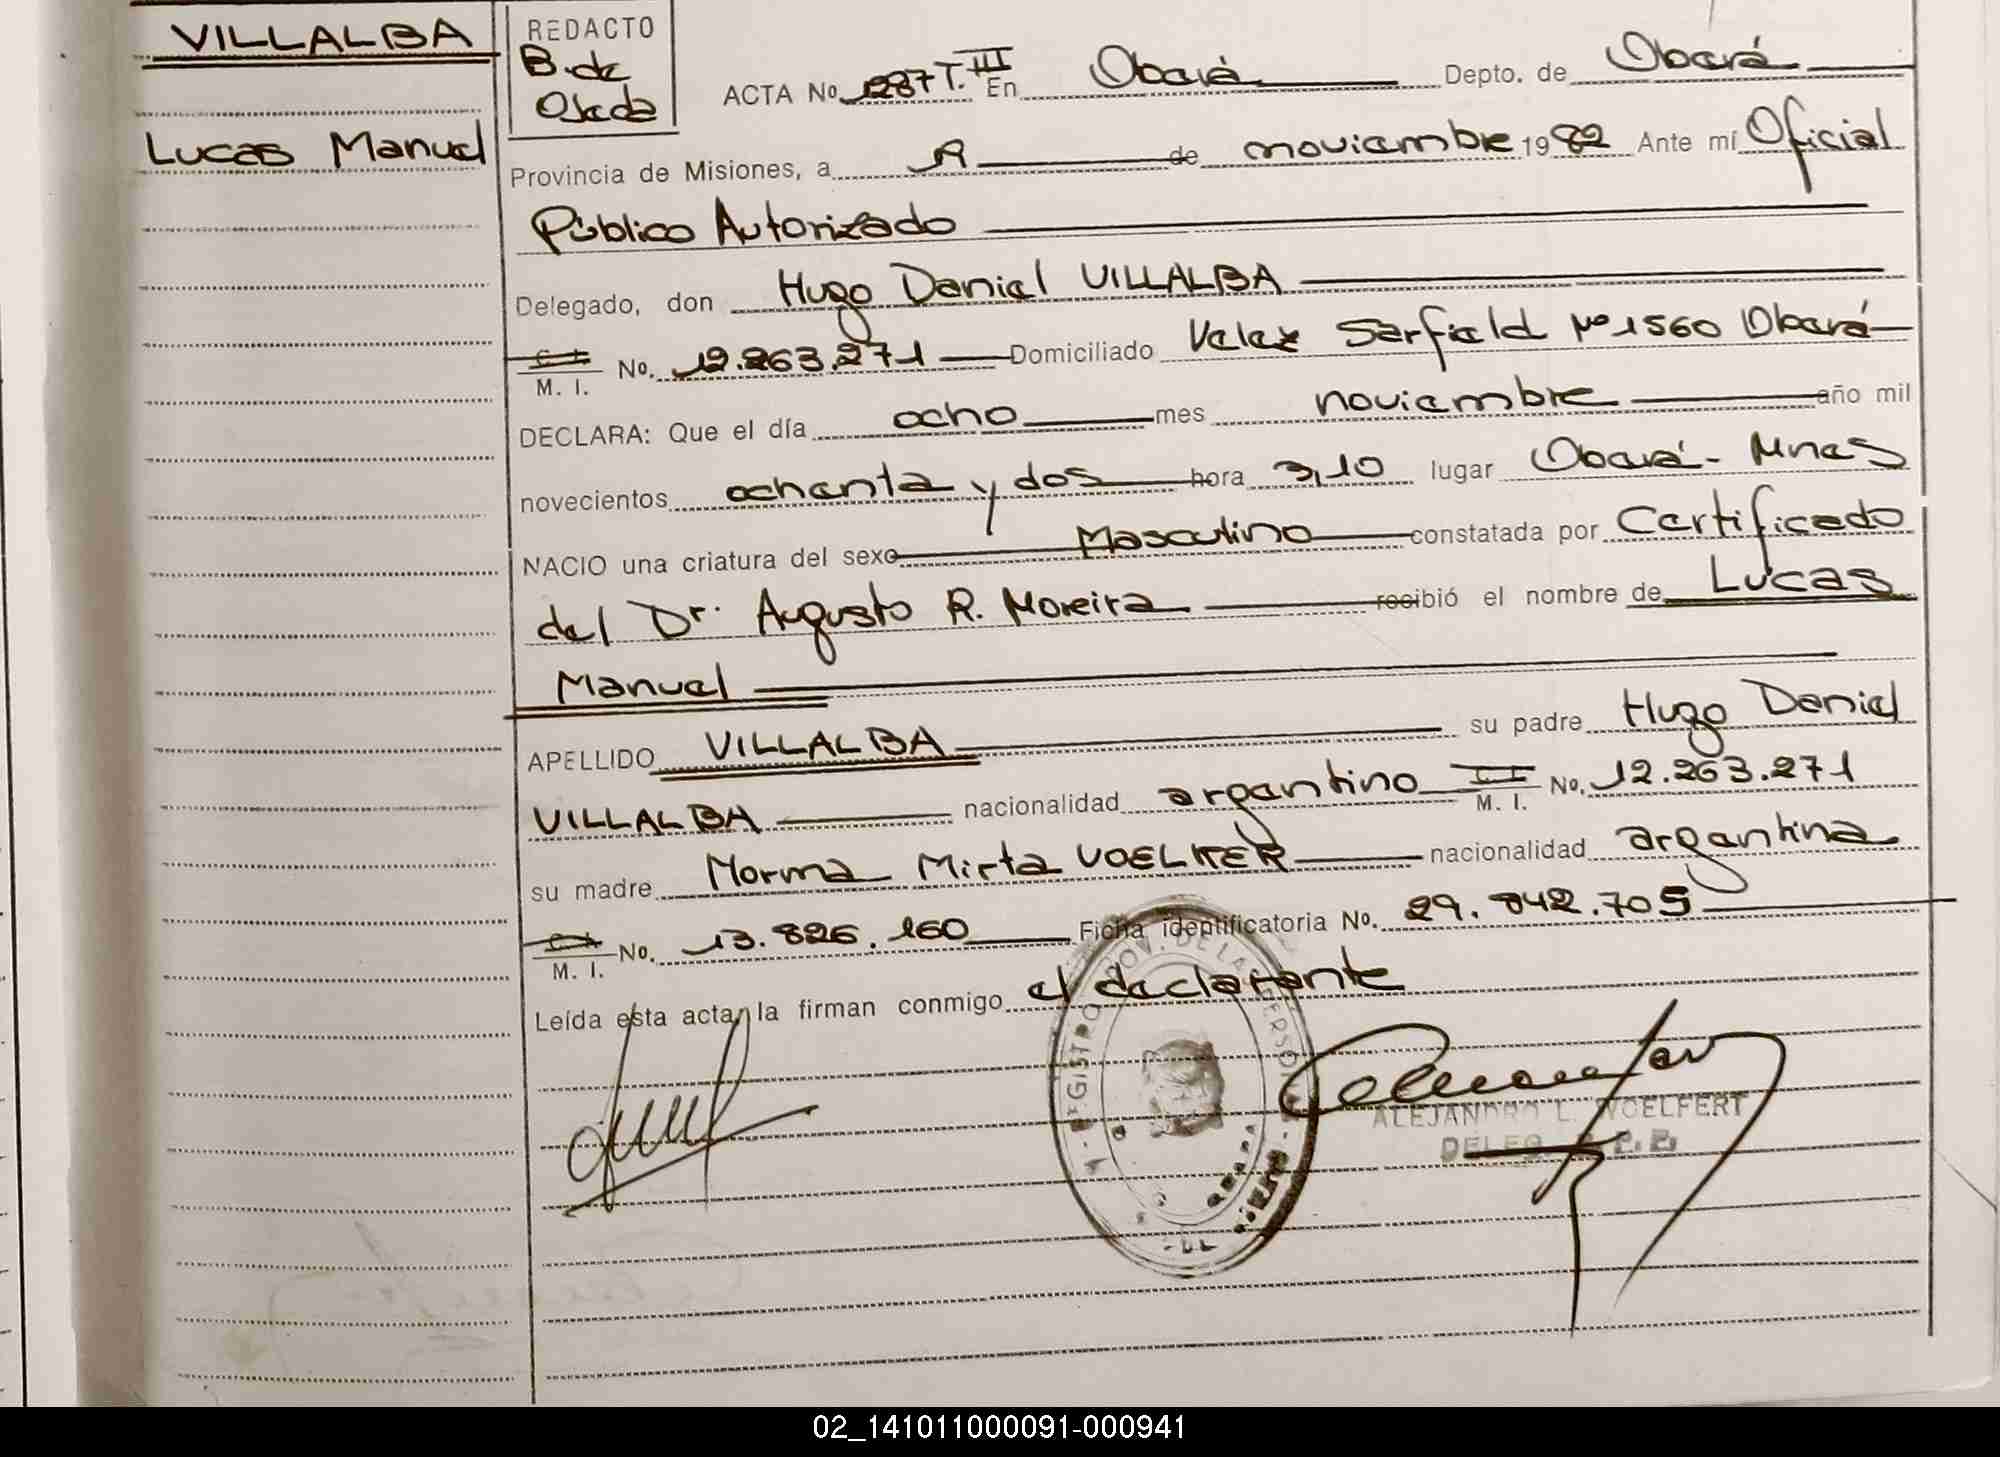 VILLALBA
Lucas Manuel
REDACTO
B. de
Ojeda
ACTA No 1287 T. III En Oberá Depto. de Oberá
Provincia de Misiones, a de noviembre 1982 Ante mí Oficial
Público Autorizado
Delegado, don Hugo Daniel VILLALBA
M. I. No. 12.263.271 Domiciliado Velez Sarfield Nº 1560 Oberá
DECLARA: Que el día ocho mes noviembre año mil
novecientos ochenta y dos hora 3,10 lugar Oberá - Mnes
NACIO una criatura del sexo Masculino constatada por Certificado
del Dr. Augusto R. Moreira recibió el nombre de Lucas
Manuel
APELLIDO VILLALBA su padre Hugo Daniel
VILLALBA nacionalidad argentino M. I. No. 12.263.271
su madre Norma Mirta VOELKER nacionalidad argentina
M. I. No. 13.826.160 Ficha identificatoria No. 29.842.705
Leída esta acta, la firman conmigo el declarante
REGISTRO PROV. DE LA PERSONAS
ALEJANDRO L. WOELFERT
02_141011000091-000941